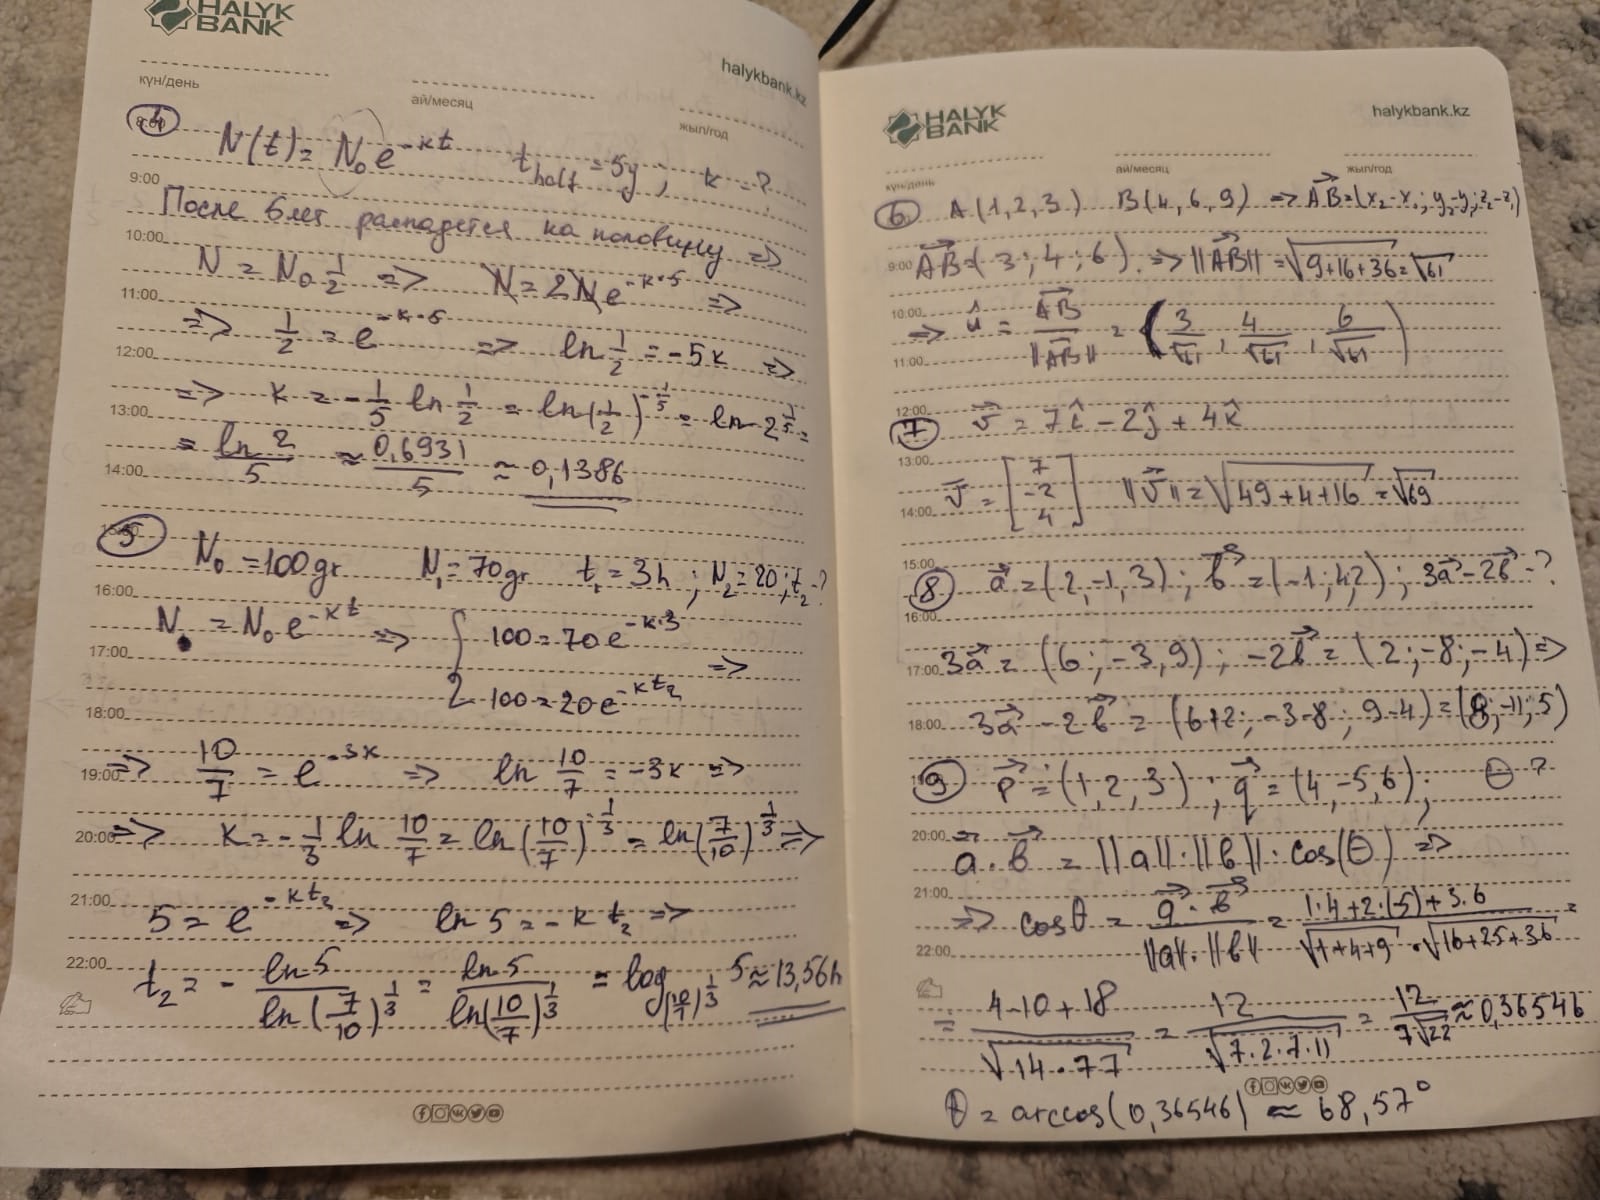 HALYK
BANK
halykbank.kz
күн/день
ай/месяц
жыл/год
4
8:00
N(t) = N₀e^(-kt) t_half = 5y; k = ?
9:00
После 5 лет распадется на половину =>
10:00
N = N₀ 1/2 => N = 2Ne^(-k·5) =>
11:00
=> 1/2 = e^(-k·5) => ln 1/2 = -5k =>
12:00
=> k = -1/5 ln 1/2 = ln(1/2)^(-1/5) = ln 2^(1/5) =
13:00
= ln 2/5 ≈ 0,6931/5 ≈ 0,1386
14:00
5
N₀ = 100gr N₁ = 70gr t₁ = 3h; N₂ = 20; t₂ - ?
16:00
N = N₀e^(-kt) => { 100 = 70e^(-k·3)
17:00
100 = 20e^(-kt₂) =>
18:00
=> 10/7 = e^(-3k) => ln 10/7 = -3k =>
19:00
=> k = -1/3 ln 10/7 = ln(10/7)^(-1/3) = ln(7/10)^(1/3) =>
20:00
21:00
5 = e^(-kt₂) => ln 5 = -kt₂ =>
22:00
t₂ = - ln 5/ln(7/10)^(1/3) = ln 5/ln(10/7)^(1/3) = log_(10/7)^(1/3) 5 ≈ 13,56h
HALYK
BANK
halykbank.kz
күн/день
ай/месяц
жыл/год
6 A(1,2,3) B(4,6,9) => AB⃗ = (x₂-x₁; y₂-y₁; z₂-z₁)
9:00
AB⃗ = (3; 4; 6). => ||AB⃗|| = √(9+16+36) = √61
10:00
=> û = AB⃗/||AB⃗|| = (3/√61, 4/√61, 6/√61)
11:00
12:00
7 v⃗ = 7î - 2ĵ + 4k̂
13:00
v⃗ = [7 -2 4] ||v⃗|| = √(49+4+16) = √69
14:00
15:00
8 a⃗ = (2,-1,3); b⃗ = (-1;4,2); 3a⃗-2b⃗ - ?
16:00
17:00
3a⃗ = (6; -3, 9); -2b⃗ = (2; -8; -4) =>
18:00
3a⃗ - 2b⃗ = (6+2; -3-8; 9-4) = (8; -11; 5)
9 p⃗ = (1, 2, 3); q⃗ = (4, -5, 6); Θ - ?
20:00
a⃗ · b⃗ = ||a||·||b||·cos(Θ) =>
21:00
=> cosθ = a⃗·b⃗/||a||·||b|| = 1·4+2·(-5)+3·6/√(1+4+9)·√(16+25+36) =
22:00
= 4-10+18/√(14·77) = 12/√(7·2·7·11) = 12/7√22 ≈ 0,36546
θ = arccos(0,36546) ≈ 68,57°